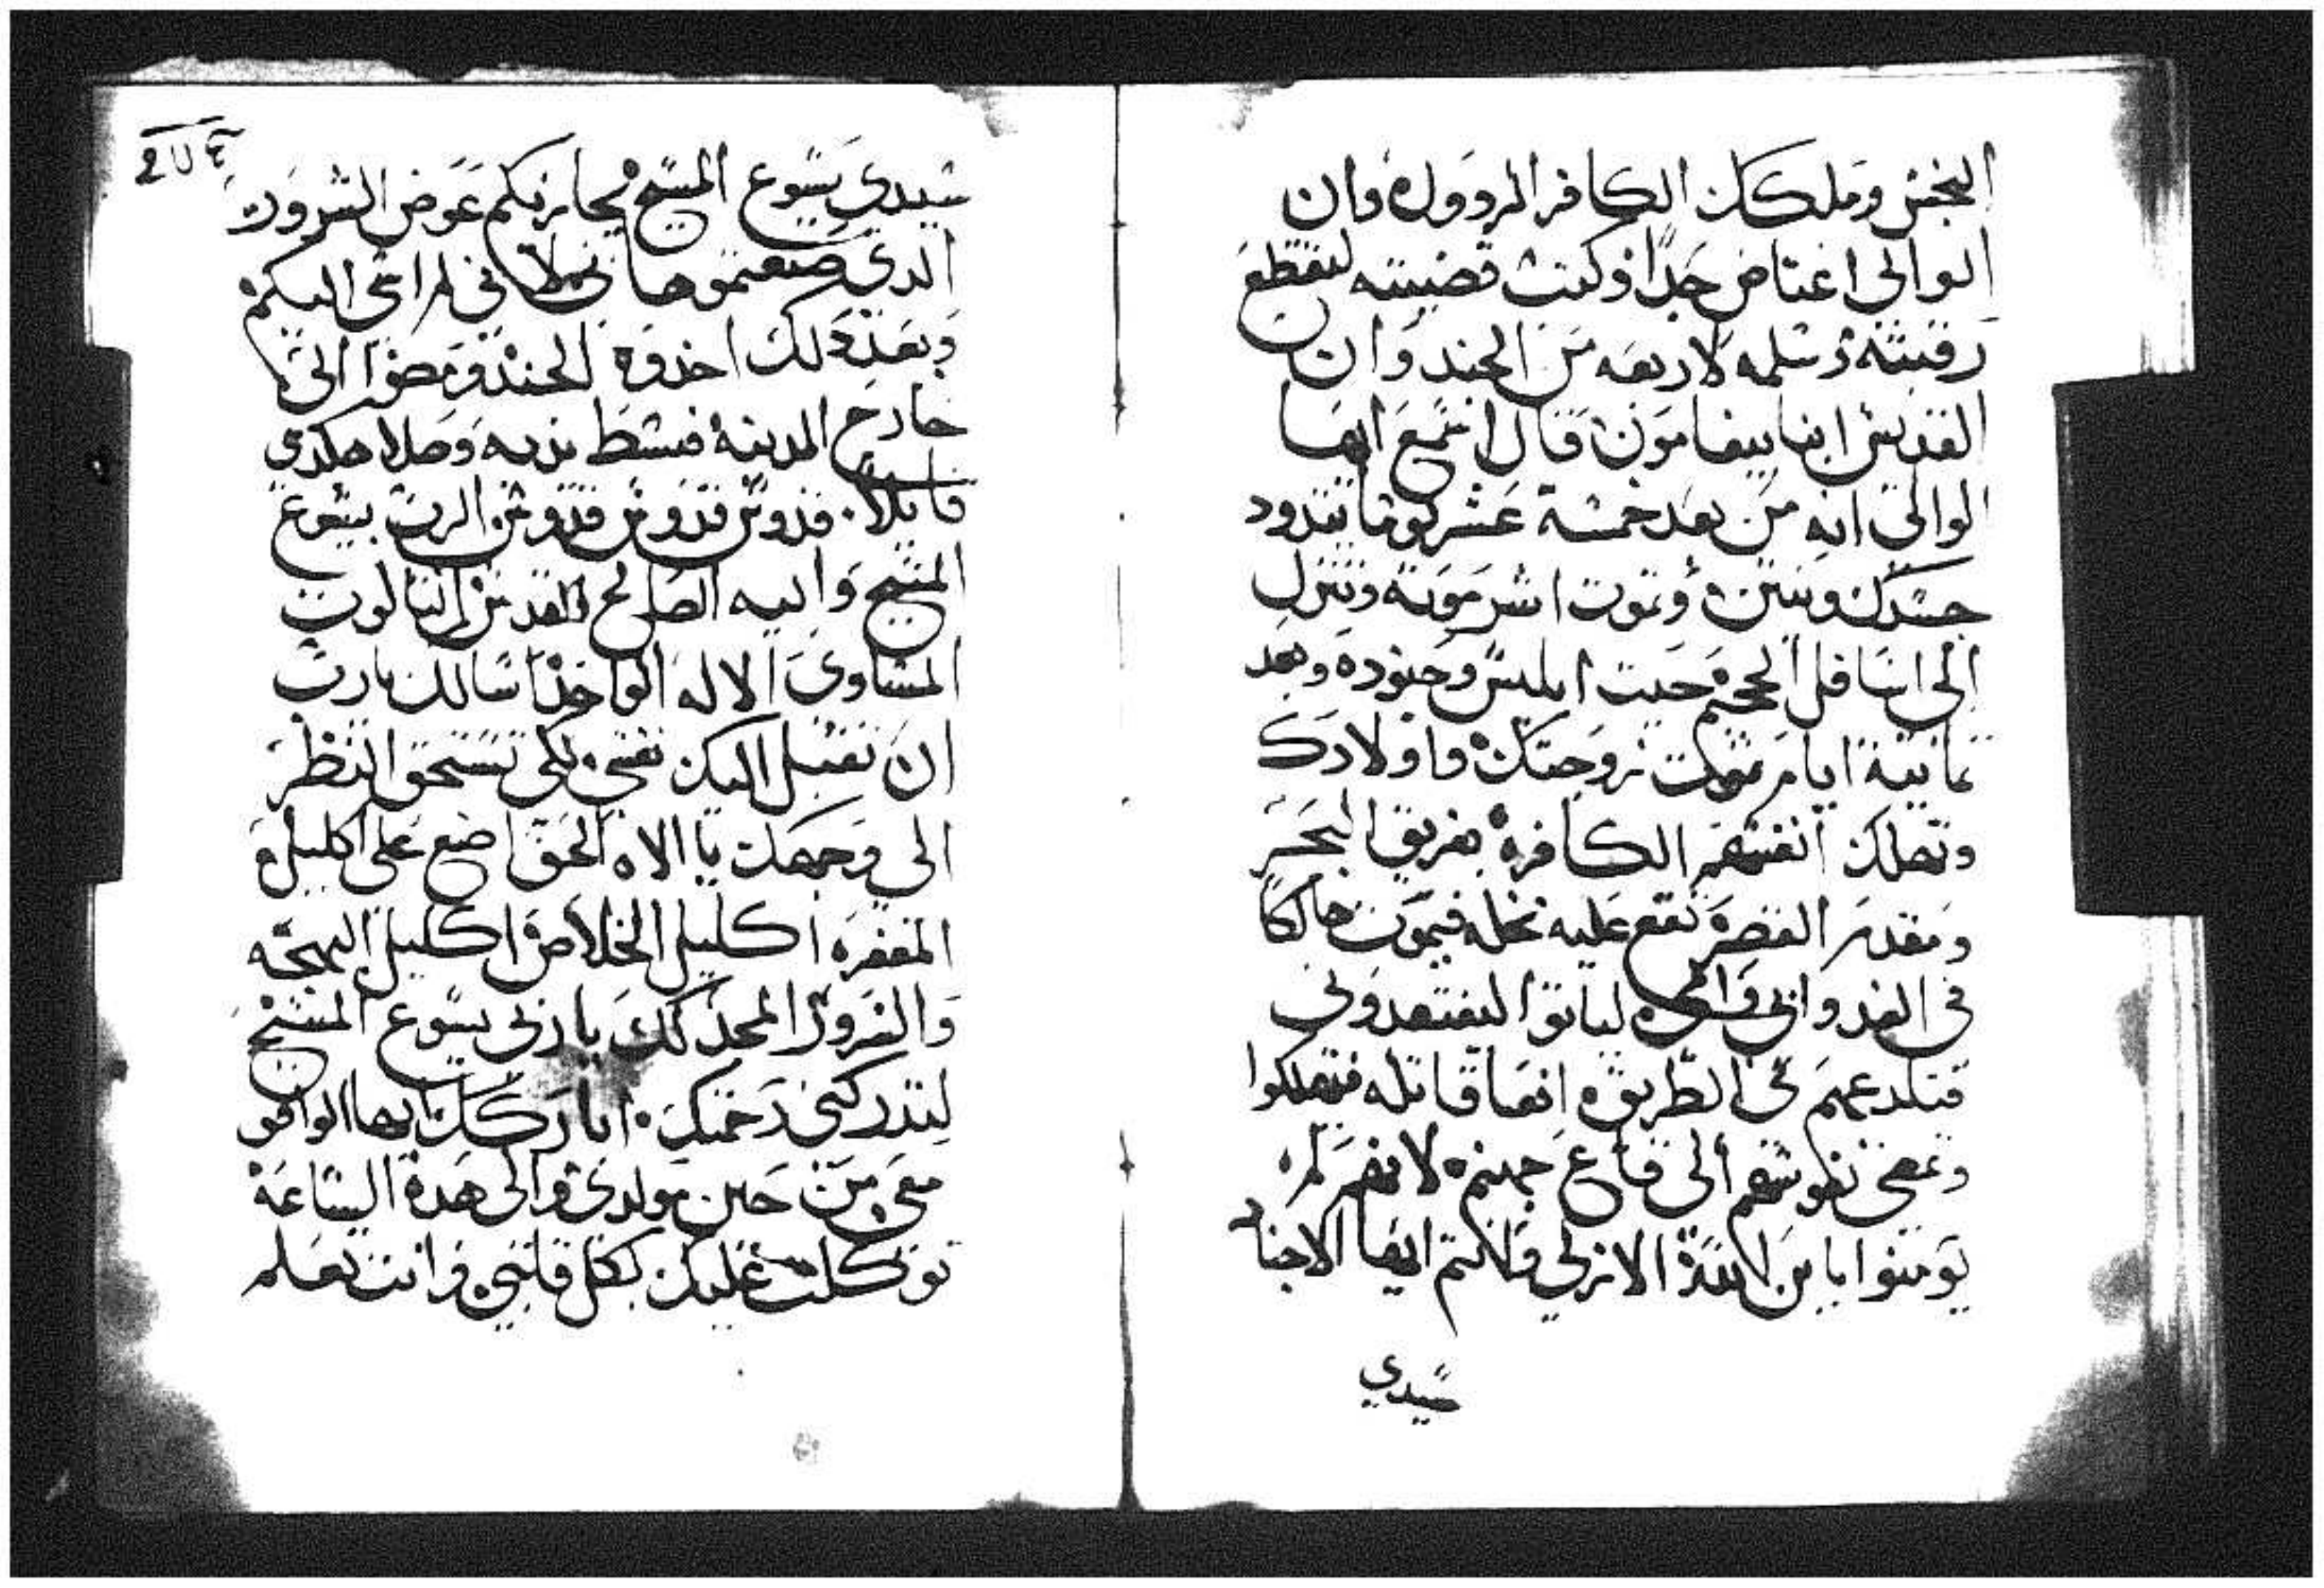 النجس وملكك الكافر المردول وان
الوالى اغتاض جدا وكتب قضيته لتقطع
رقبته وسلمه لاربعه من الجند وان
القديس ابنا بيفامون قال اسمع ايها
الوالى انه من بعد خمسة عشر يوما يتدود
جسدك وينتن وتموت اشر موته وتنزل
الى اسافل الجحيم حيت ابليس وجنوده وبعد
تمانية ايام تموت زوجتك واولادك
وتهلك انفسهم الكافره بغريق البحر
ومقدم القصر تقع عليه نخله فيموت هالكا
فى الغد واتى لياتوا ليفتقدونى
فتلدعهم فى الطريق افعا قاتله فيهلكوا
وتمضى نفوسهم الى قاع جهنم لانهم لم
يومنوا بابن الله الازلى وانتم ايها الاجناد
سيدي
سيدي يسوع المسيح يجازيكم عوض الشرور
الدي صنعتموها فى لم اعى اليكم
وبعد دلك اخدوه الجند ومضوا الى
خارج المدينه فبسط يديه وصلا هكدي
قايلا. قدوس قدوس قدوس الرب يسوع
المسيح وابيه الصالح والقدس التالوت
المساوى الاله الواحد اسالك يارب
ان تقبل اليك نفسى لكى تستحق النظر
الى وجهك يا الاه الحق اضع على اكليل
المغفره اكليل الخلاص اكليل البهجه
والفرور المجد لك يا ربى يسوع المسيح
لتدركنى رحمتك اباركك ايها الواقف
معى من حين مولدى والى هده الساعه
توكلت عليك بكل قلبى وانت تعلم